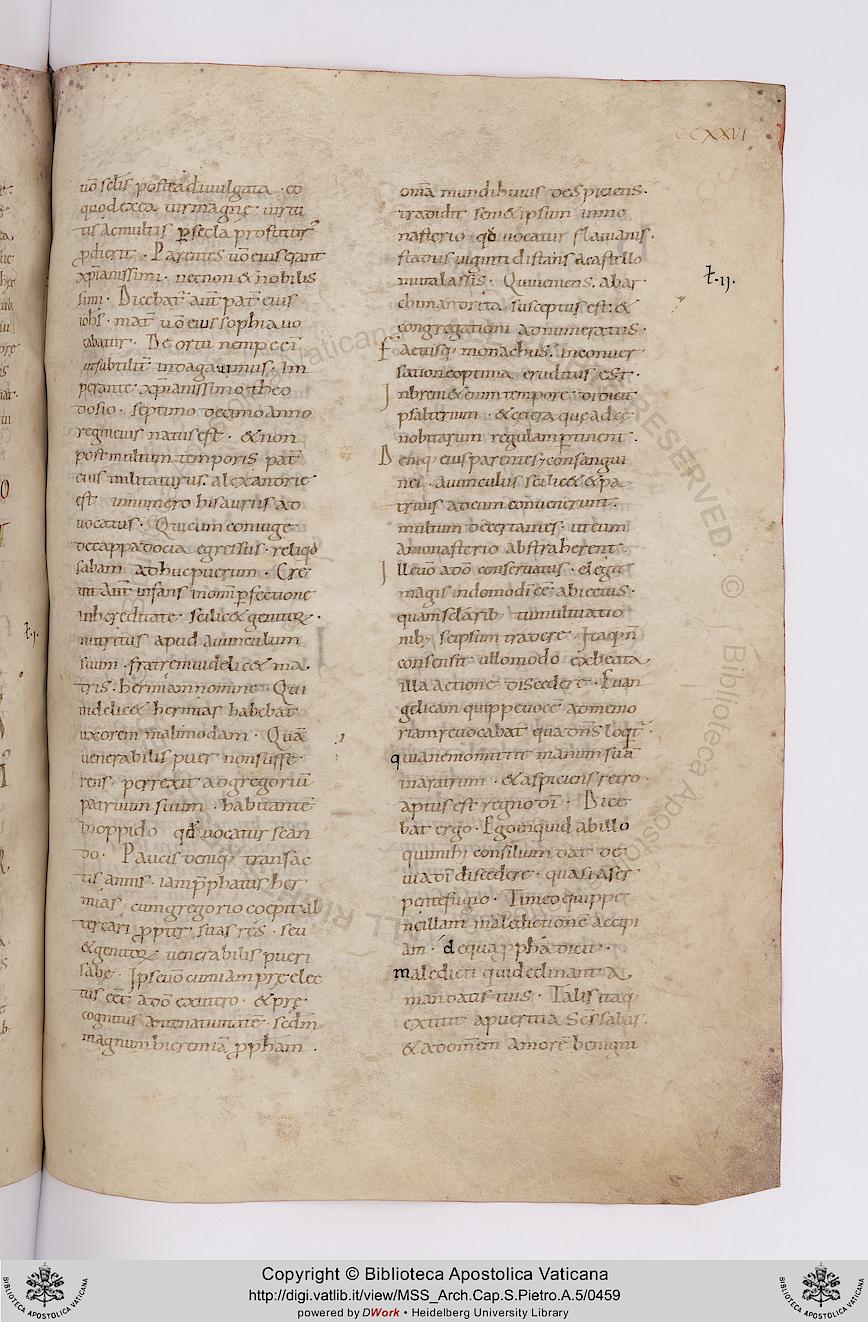 CCXXVI
uō sc̄lis postea divulgata · eo
quod ex ea vir magnę virtu
tis ac multis p̱ secla profuturꝰ
ꝓdierit · Parentes uō eius erant
xp̄ianissimi · necnon & nobilis
simi · Dicebat' aut̄ pat̄ eius
ioh̄s · mat̄ uō eius sophia uo
cabatur · De ortu nempe ei'
subtilit̄ indagauimus · Im
perante xp̄ianissimo theo
dosio · septimo decimo anno
regni eius natus est · & non
post multum temporis pat̄
eius militaturus alexandrię
est in numero hisaurius ad
uocatus · Qui cum coniuge
de cappadocia egressus · reliqd̄
sabam adhuc puerum · Cre
uit aut̄ infans in om̄i perfectione
in hereditate · scilic& genitoꝝ ·
nutritus apud auunculum
suum · fratrem uidelic& ma
tris · hermiam nomine · Qui
uidelic& hermias habebat
uxorem malimodam · Quā
uenerabilis puer non suffe
rens · perrexit ad gregoriū
patruum suum · habitantē
in oppido qd̄ uocatur scan
do · Paucis deniq; transac
tis annis · iam p̄phatus her
mias, cum gregorio coepit al
tercari ꝓpter suas res · seu
& genitoꝝ uenerabilis pueri
sabę · Ipse uō cum iam pręelec
tus eēt a dō exutero · & prę
cognitus ante natiuitatē · sedm̄
magnum hieremiā ꝓph̄am ·
om̄a mundi huius despiciens ·
tradidit sem& ipsum in mo
nasterio qd̄ uocatur flauianis ·
stadiis uiginti distans a castello
mutalassis · Qui ueniens · ab ar
chimandrita susceptus est · &
congregationi adnumeratus ·
Factusq; monachus · in conuer
satione optima eruditus est ·
In breui & enim tempore · didicit
psalterium · & cetera quę ad ce
nobitarum regulam p̱tinent ·
Deniq; eius parentes ⁊ consangui
nei · auunculus scilic& & pa
truus ad eum conuenerunt ·
multum decertantes · ut eum
a monasterio abstraherent ·
Ille uō a dō conseruatus · elegit
magis in domo dī eē abiectus ·
quam sclārib; tumultuatio
nib; seipsum tradere · Itaq; n̄
consensit ullo modo ex beata
illa actione discedere · Euan
gelicam quippe uocē ad memo
riam reuocabat qua dn̄s loqt̄ ·
quia nemo mittit manum suā
in aratrum · & aspiciens retro ·
aptus est regno dī · Dice
bat ergo · Ego inquid ab illo
qui mihi consilium dat de
uia dī discedere · quasi anser
pente fugio · Timeo quippe
ne illam maledictionē accipi
am · de qua ꝓph̄a dicit ·
maledicti qui declinant a
mandatis tuis · Talis itaq;
extitit a pueritia Ses sabas ·
& ad om̄em amorē benigni